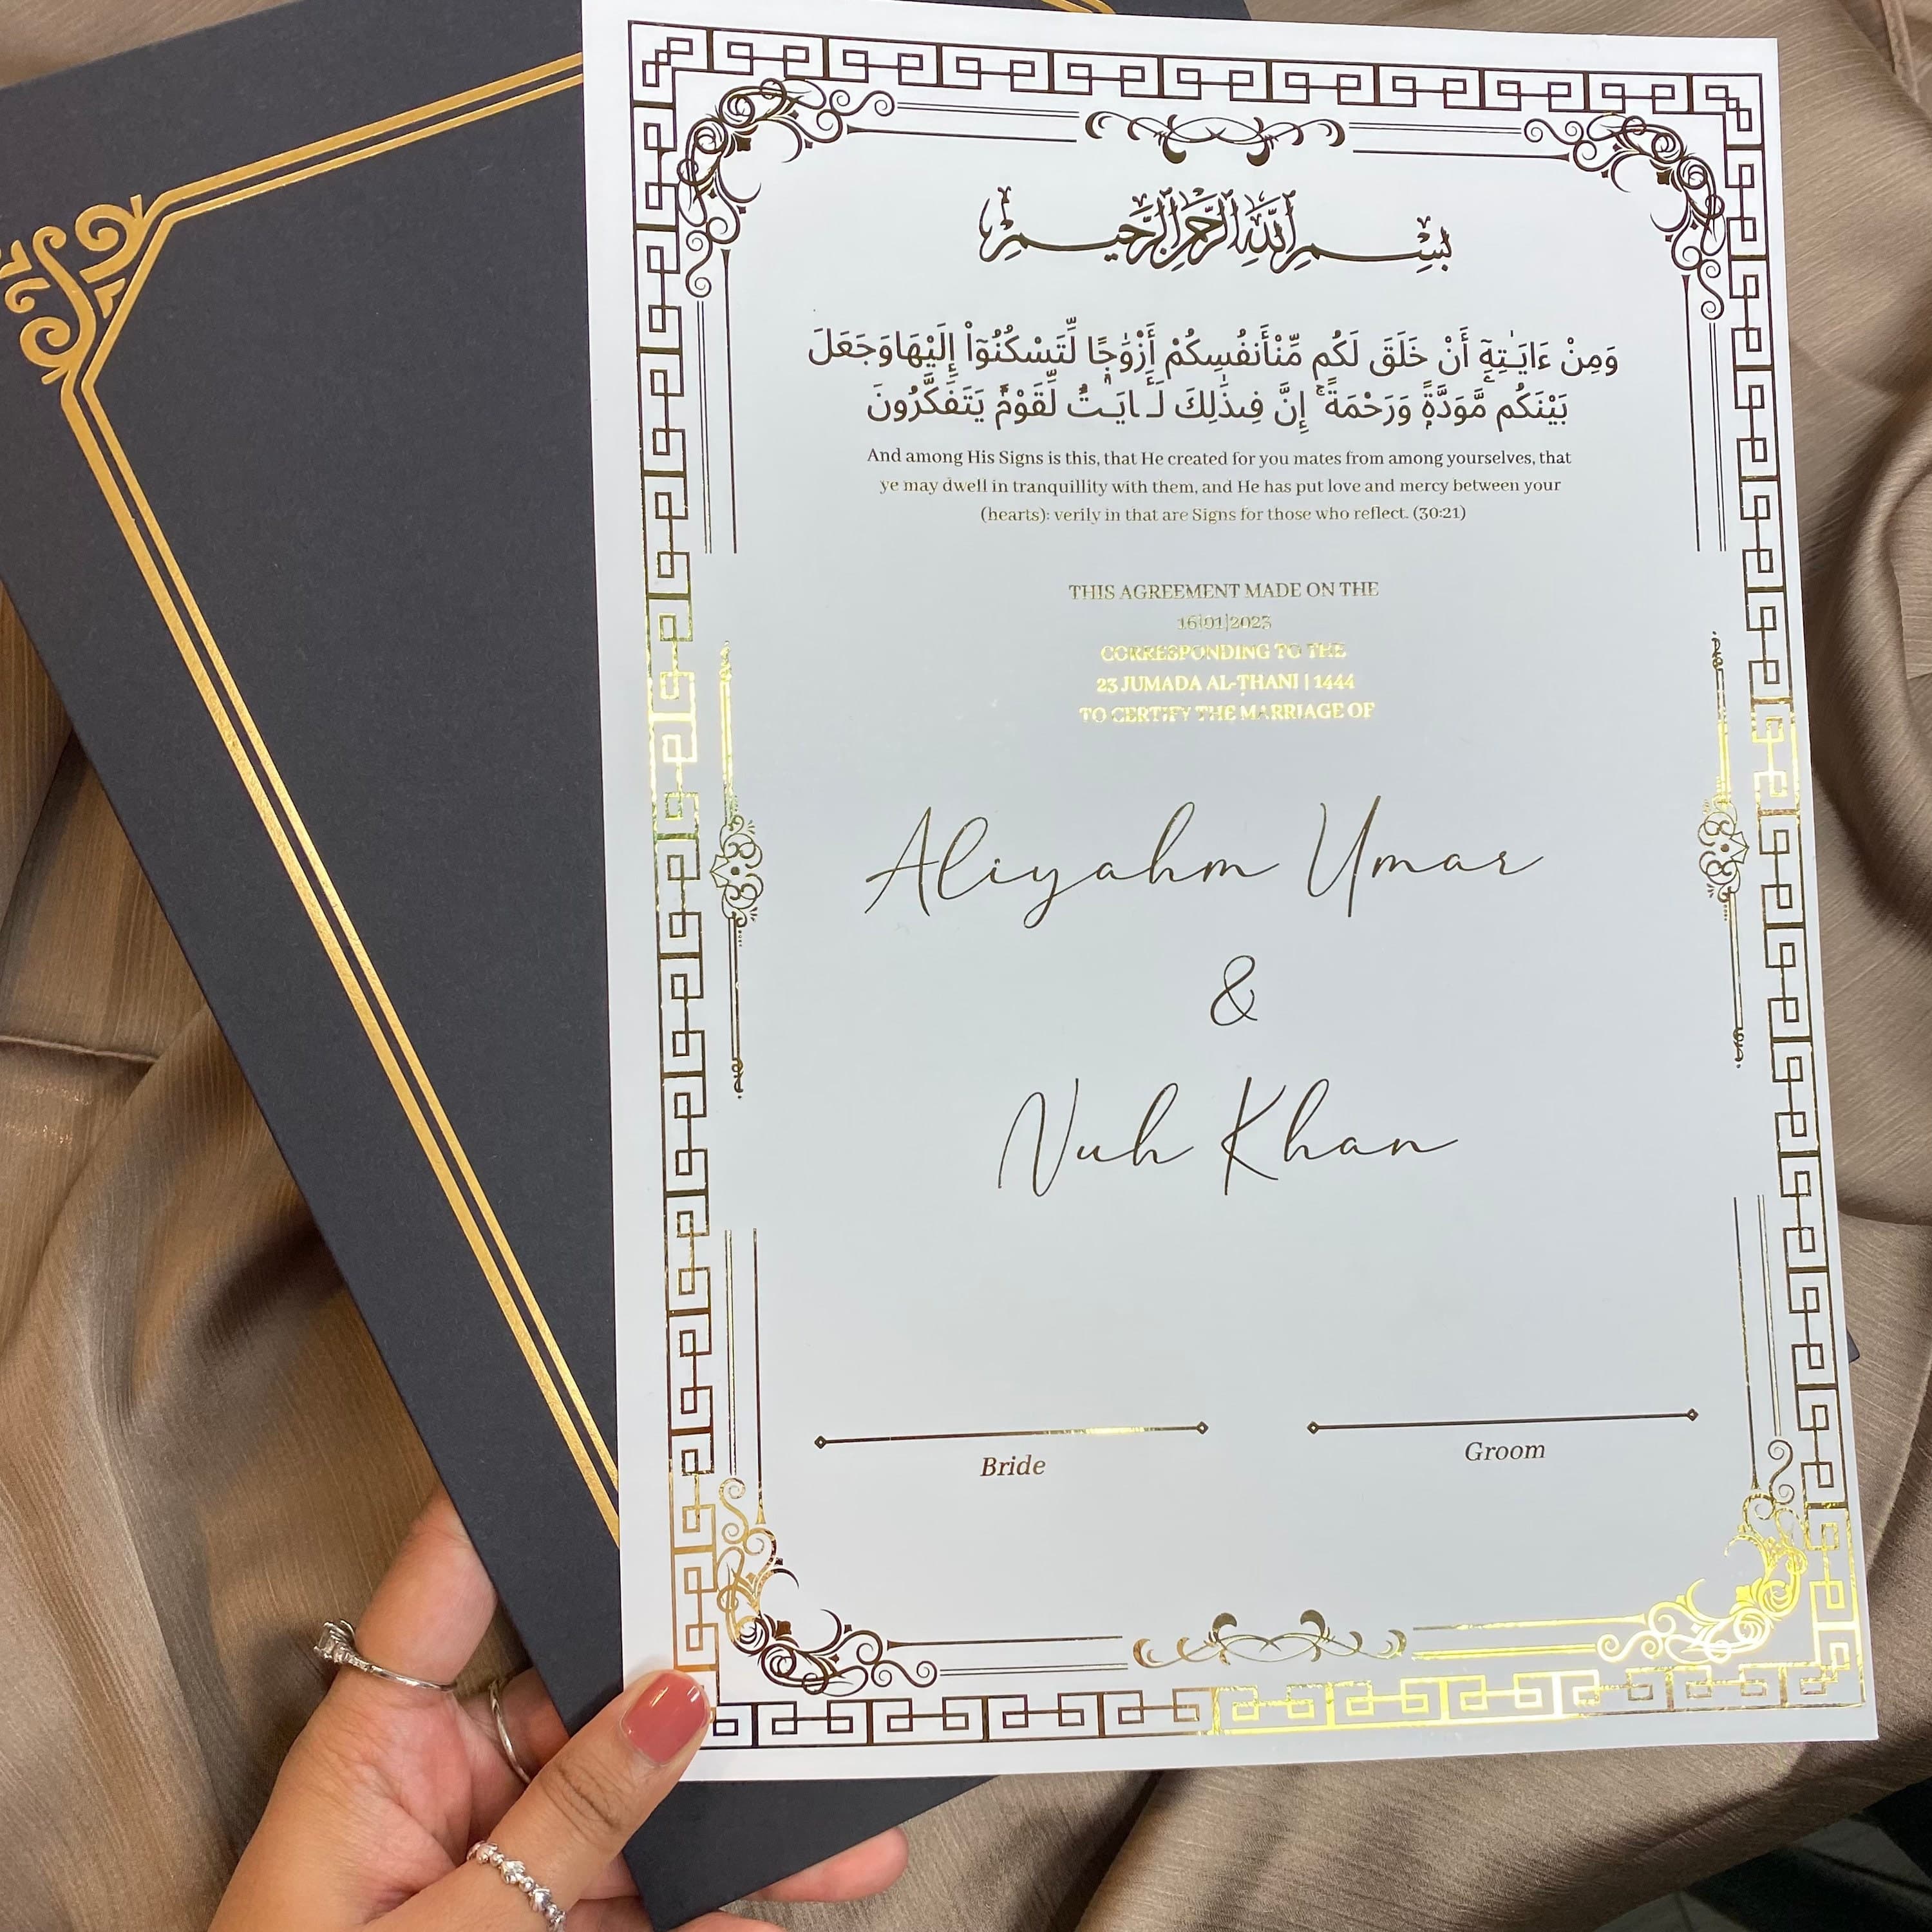 بِسْمِ اللَّهِ الرَّحْمَنِ الرَّحِيمِ
وَمِنْ ءَايَـٰتِهِۦٓ أَنْ خَلَقَ لَكُم مِّنْأَنفُسِكُمْ أَزْوَٰجًا لِّتَسْكُنُوٓا۟ إِلَيْهَاوَجَعَلَ
بَيْنَكُم مَّوَدَّةً وَرَحْمَةً ۚ إِنَّ فِىذَٰلِكَ لَـَٔايَـٰتٍ لِّقَوْمٍ يَتَفَكَّرُونَ
And among His Signs is this, that He created for you mates from among yourselves, that
ye may dwell in tranquillity with them, and He has put love and mercy between your
(hearts): verily in that are Signs for those who reflect. (30:21)
THIS AGREEMENT MADE ON THE
16|01|2023
CORRESPONDING TO THE
23 JUMADA AL-THANI | 1444
TO CERTIFY THE MARRIAGE OF
Aliyahm Umar
&
Nuh Khan
Bride
Groom